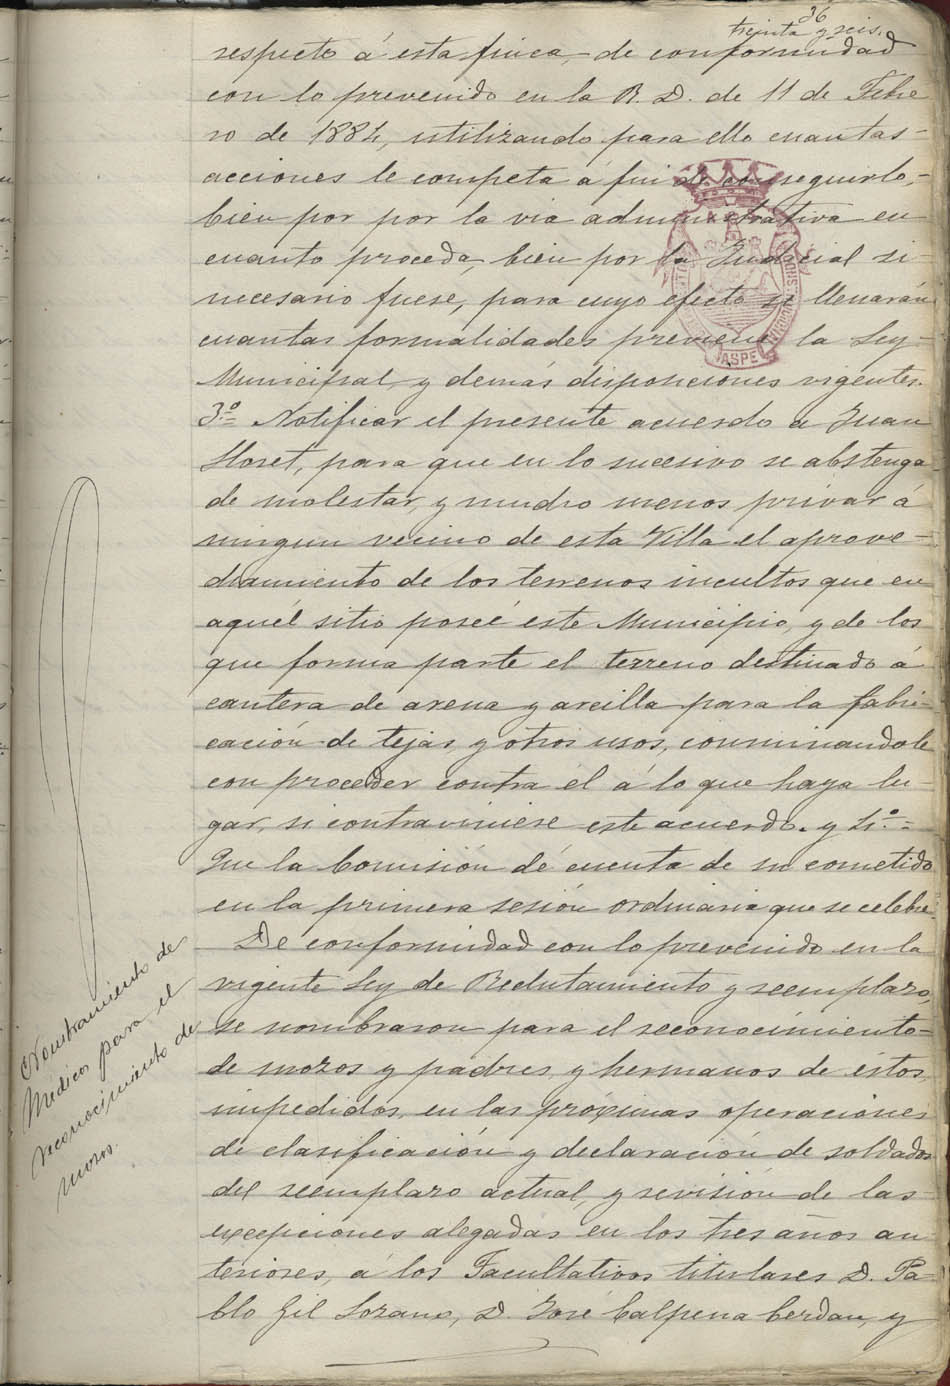 36
treinta y seis.
respecto á esta finca, de conformidad
con lo prevenido en la R. D. de 11 de Febre
ro de 1884, utilizando para ello cuantas
acciones le competa á fin de conseguirlo,
bien por por la via administrativa en
cuanto proceda, bien por la Judicial si
necesario fuese, para cuyo efecto se llenarán
cuantas formalidades previene la Ley
Municipal y demás disposiciones vigentes.
3º= Notificar el presente acuerdo a Juan
Lloret, para que en lo sucesivo se abstenga
de molestar, y mucho menos privar á
ningun vecino de esta Villa el aprove-
chamiento de los terrenos incultos que en
aquél sitio poseé este Municipio, y de los
que forma parte el terreno destinado á
cantera de arena y arcilla para la fabri-
cación de tejas y otros usos, conminandole
con proceder contra él á lo que haya lu-
gar, si contraviniese este acuerdo. y 4º=
Que la Comisión dé cuenta de su cometido
en la primera sesión ordinaria que se celebre.
De conformidad con lo prevenido en la
vigente Ley de Reclutamiento y reemplazo,
se nombraron para el reconocimiento
de mozos y padres y hermanos de éstos
impedidos, en las próximas operaciones
de clasificación y declaración de soldados
del reemplazo actual, y revisión de las
excepciones alegadas en los tres años an
teriores, á los Facultativos titulares D. Pa-
blo Gil Lozano, D. José Calpena Cerdan, y
Nombramiento de
Médicos para el
reconocimiento de
mozos.
ASPE